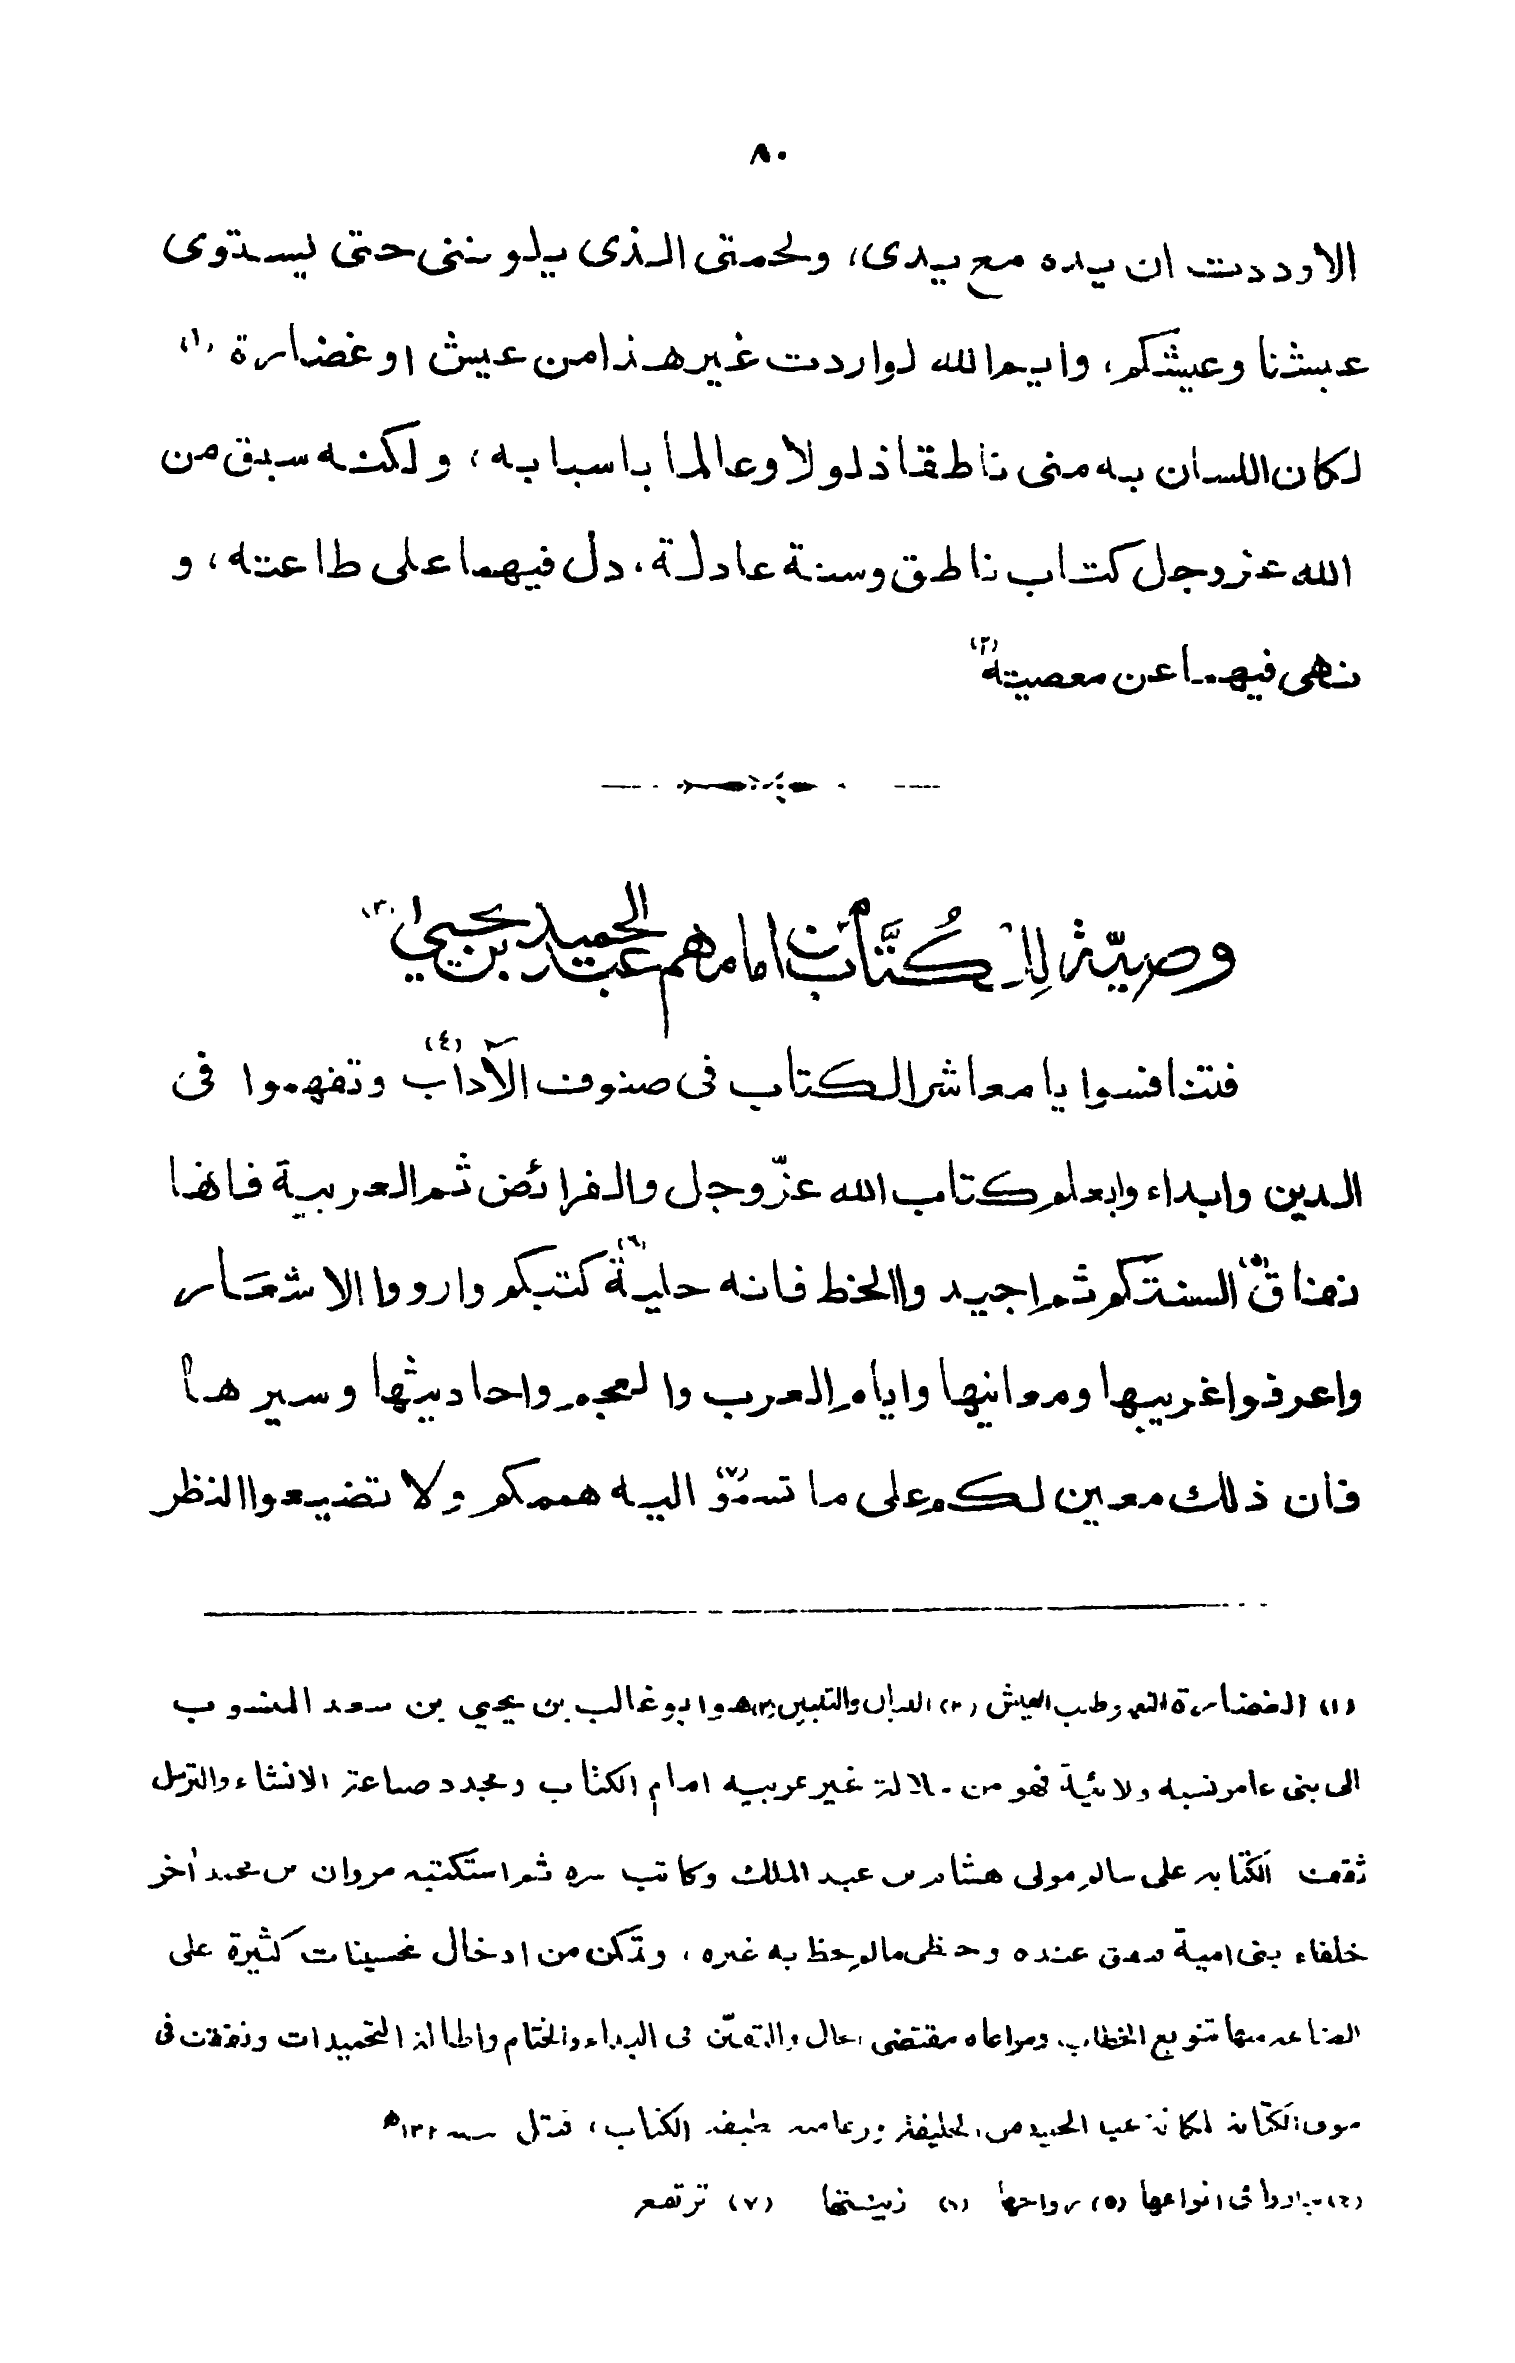 ٨٠
الا وددت ان يده مع يدى، ولحمتى الذى يلوننى حتى يستوى
عيشنا وعيشكم، وايم الله لو اردت غير هذا من عيش او غضارة (١)
لكان اللسان به منى ناطقا ذلولا وعالما باسبابه، ولكنه سبق من
الله عز وجل كتاب ناطق وسنة عادلة، دل فيهما على طاعته، و
نهى فيهما عن معصيته (٢)
وصيّة للكُتَّاب من امامهم عبد الحميد بن يحيى (٣)
فتنافسوا يا معاشر الكتاب فى صنوف الآداب (٤) وتفهموا فى
الدين وابداءوا بعلم كتاب الله عزّ وجل والفرائض ثم العربية فانها
نفاق (٥) السنتكم ثم اجيدوا الخط فانه حلية (٦) كتبكم وارووا الاشعار
واعرفوا غريبها ومعانيها وايام العرب والعجم واحاديثها وسيرها
فان ذلك معين لكم على ما تسمو (٧) اليه هممكم ولا تضيعوا النظر
(١) الغضارة النعم وطيب العيش (٢) البيان والتبيين (٣) هو ابو غالب بن يحيي بن سعد المنسوب
الى بنى عامر نسبه ولائية فهو من سلالة غير عربيه امام الكتاب ومجدد صناعة الانشاء والترسل
ثقف الكتابه على سالم مولى هشام بن عبد الملك وكاتب سره ثم استكتبه مروان بن محمد آخر
خلفاء بنى امية عنده وحظى ما لم يحظ به غيره، وتمكن من ادخال تحسينات كثيرة على
الصناعه منها تنويع الخطاب ومراعاه مقتضى الحال والتفنّن فى البداء والختام واطالة التحميدات ونفقت فى
الكتّابة لمكانة عبد الحميد من الخليفة الكتاب، قتل سنه ١٣٢ ه
(٤) انواعها (٥) رواجها (٦) زينتها (٧) ترتفع